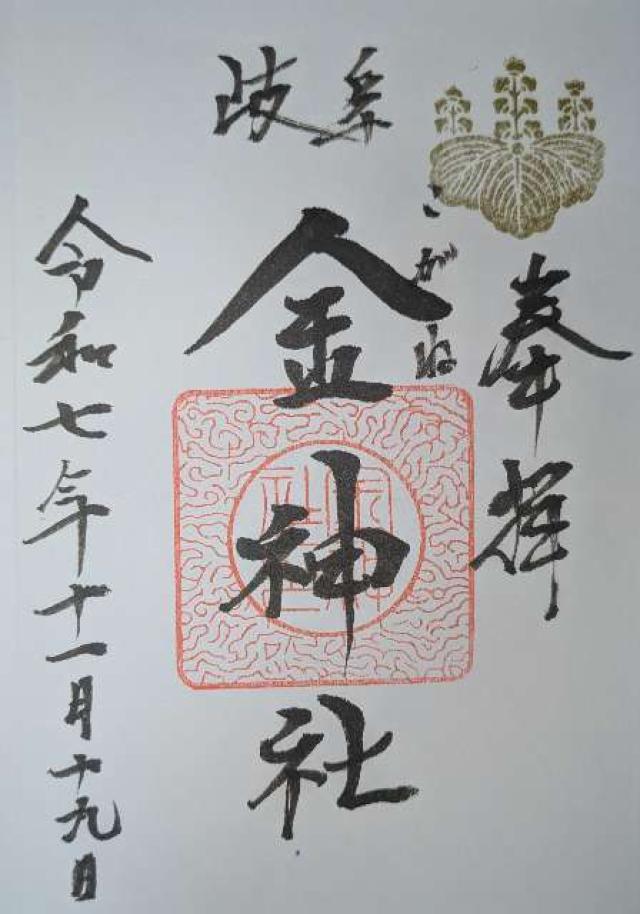 奉拝
岐阜
こがね
金神社
令和七年十一月十九日